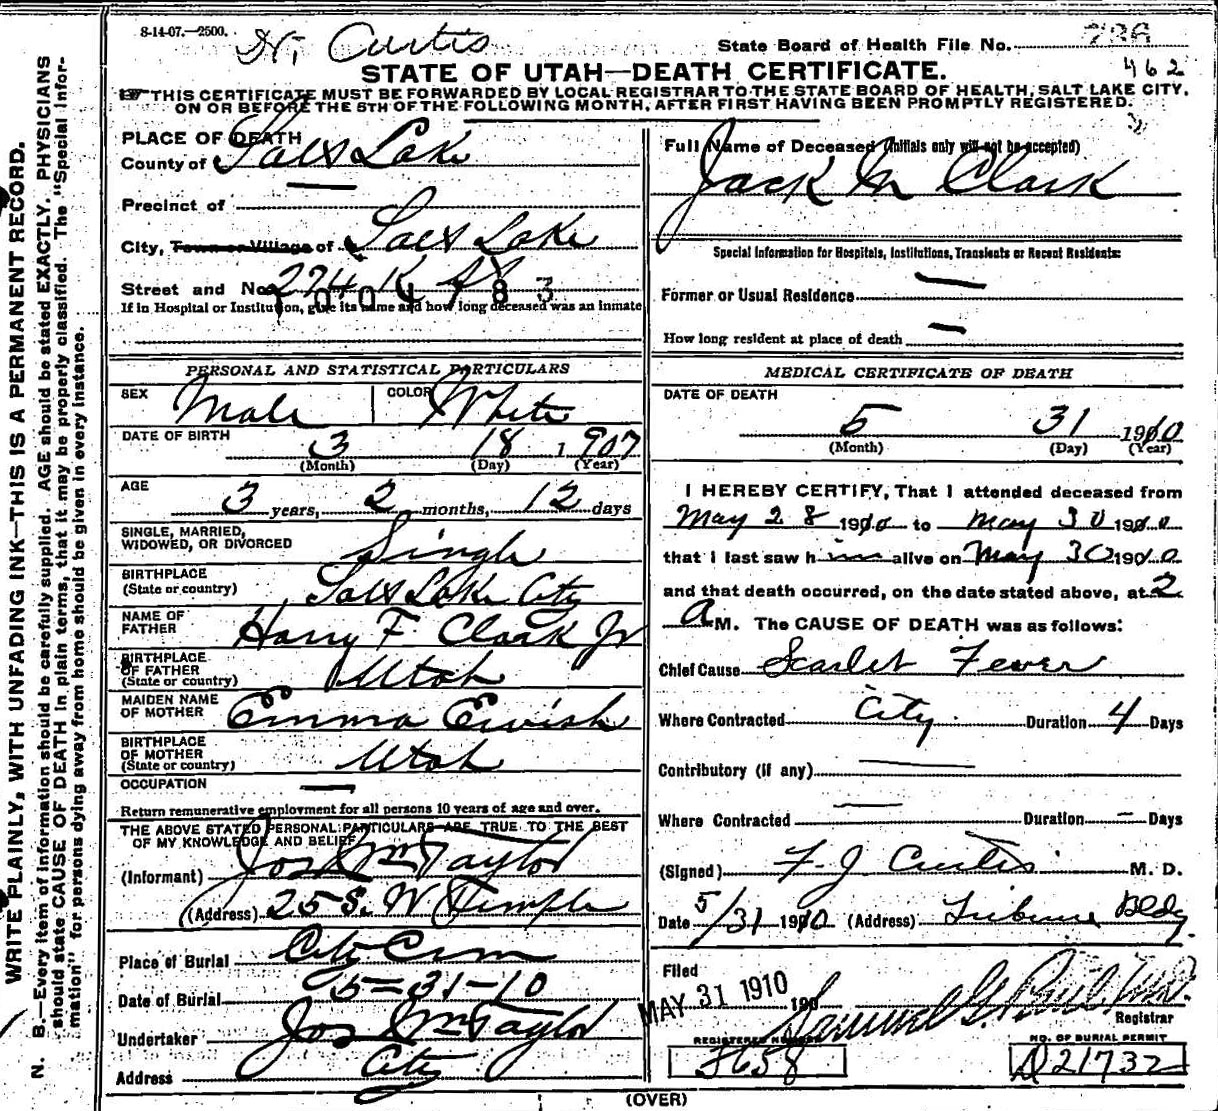 8-14-07.—2500.
Dr. Curtis
State Board of Health File No.
462
STATE OF UTAH—DEATH CERTIFICATE.
THIS CERTIFICATE MUST BE FORWARDED BY LOCAL REGISTRAR TO THE STATE BOARD OF HEALTH, SALT LAKE CITY,
ON OR BEFORE THE 5TH OF THE FOLLOWING MONTH, AFTER FIRST HAVING BEEN PROMPTLY REGISTERED.
WRITE PLAINLY, WITH UNFADING INK—THIS IS A PERMANENT RECORD.
N. B.—Every item of information should be carefully supplied. AGE should be stated EXACTLY. PHYSICIANS
should state CAUSE OF DEATH in plain terms, that it may be properly classified. The "Special Infor-
mation" for persons dying away from home should be given in every instance.
PLACE OF DEATH
County of Salt Lake
Precinct of
City, Town or Village of Salt Lake
Street and No. 274 K St
If in Hospital or Institution, give its name and how long deceased was an inmate
PERSONAL AND STATISTICAL PARTICULARS
SEX Male COLOR White
DATE OF BIRTH 3 18 1907
(Month) (Day) (Year)
AGE 3 years, 2 months, 12 days
SINGLE, MARRIED,
WIDOWED, OR DIVORCED Single
BIRTHPLACE
(State or country) Salt Lake City
NAME OF
FATHER Harry F. Clark Jr
BIRTHPLACE
OF FATHER
(State or country) Utah
MAIDEN NAME
OF MOTHER Emma
BIRTHPLACE
OF MOTHER
(State or country) Utah
OCCUPATION —
Return remunerative employment for all persons 10 years of age and over.
THE ABOVE STATED PERSONAL PARTICULARS ARE TRUE TO THE BEST
OF MY KNOWLEDGE AND BELIEF
(Informant) Jos Wm Taylor
(Address) 25 S. W Temple
Place of Burial City Cem
Date of Burial 5-31-10
Undertaker Jos Wm Taylor
Address City
Full Name of Deceased (Initials only will not be accepted)
Jack M Clark
Special Information for Hospitals, Institutions, Transients or Recent Residents:
Former or Usual Residence —
How long resident at place of death —
MEDICAL CERTIFICATE OF DEATH
DATE OF DEATH
5 31 1910
(Month) (Day) (Year)
I HEREBY CERTIFY, That I attended deceased from
May 28 1910 to May 30 1910
that I last saw him alive on May 30 1910
and that death occurred, on the date stated above, at 2
a M. The CAUSE OF DEATH was as follows:
Chief Cause Scarlet Fever
Where Contracted City Duration 4 Days
Contributory (if any) —
Where Contracted — Duration — Days
(Signed) F. J. Curtis M. D.
Date 5/31 1910 (Address) Tribune Bldg.
Filed
MAY 31 1910 190
Samuel G. Paul
Registrar
REGISTERED NUMBER
3658
NO. OF BURIAL PERMIT
D21732
(OVER)